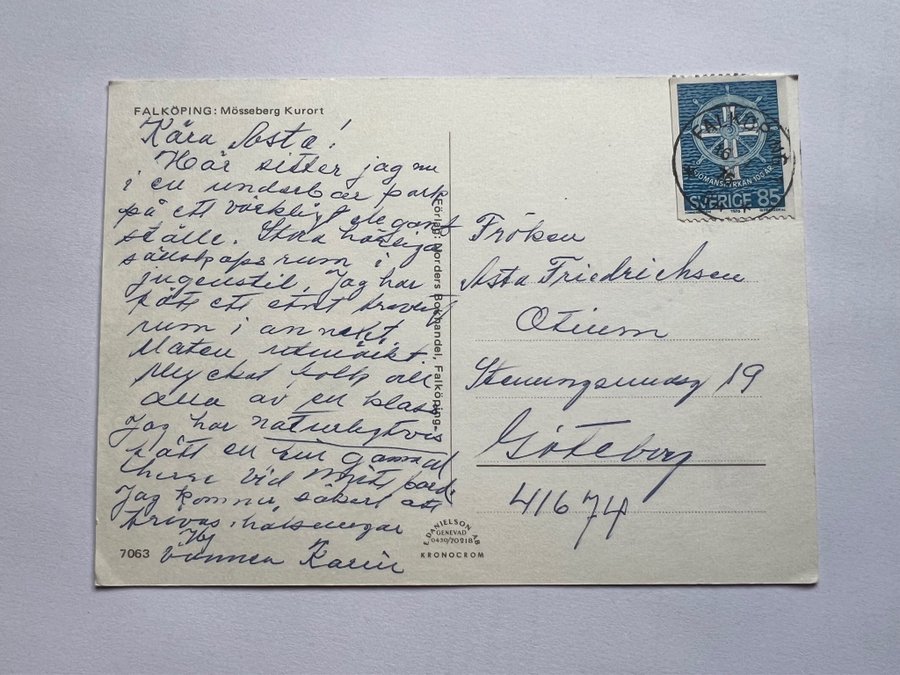 FALKÖPING: Mösseberg Kurort
Kära Asta!
Här sitter jag nu
i en underbar park
på ett väckligt elegant
ställe. Stora härliga
sällskapsrum i
jugendstil. Jag har
fått ett stort trevligt
rum i annexet.
Maten utmärkt.
Mycket folk och
alla av en klass
Jag har naturligtvis
fått en fin gammal
herre vid mitt bord.
Jag kommer säkert att
trivas. hälsningar
vännen Karin
7063
Förlag: Norders Bokhandel, Falköping
E. DANIELSON AB
GENEVAD
0430/70218
KRONOCROM
FALKÖPING
SJÖMANSKYRKAN 100 ÅR
SVERIGE 85
Fröken
Asta Friedrichsen
Otium
Stenungsundsg 19
Göteborg
41674